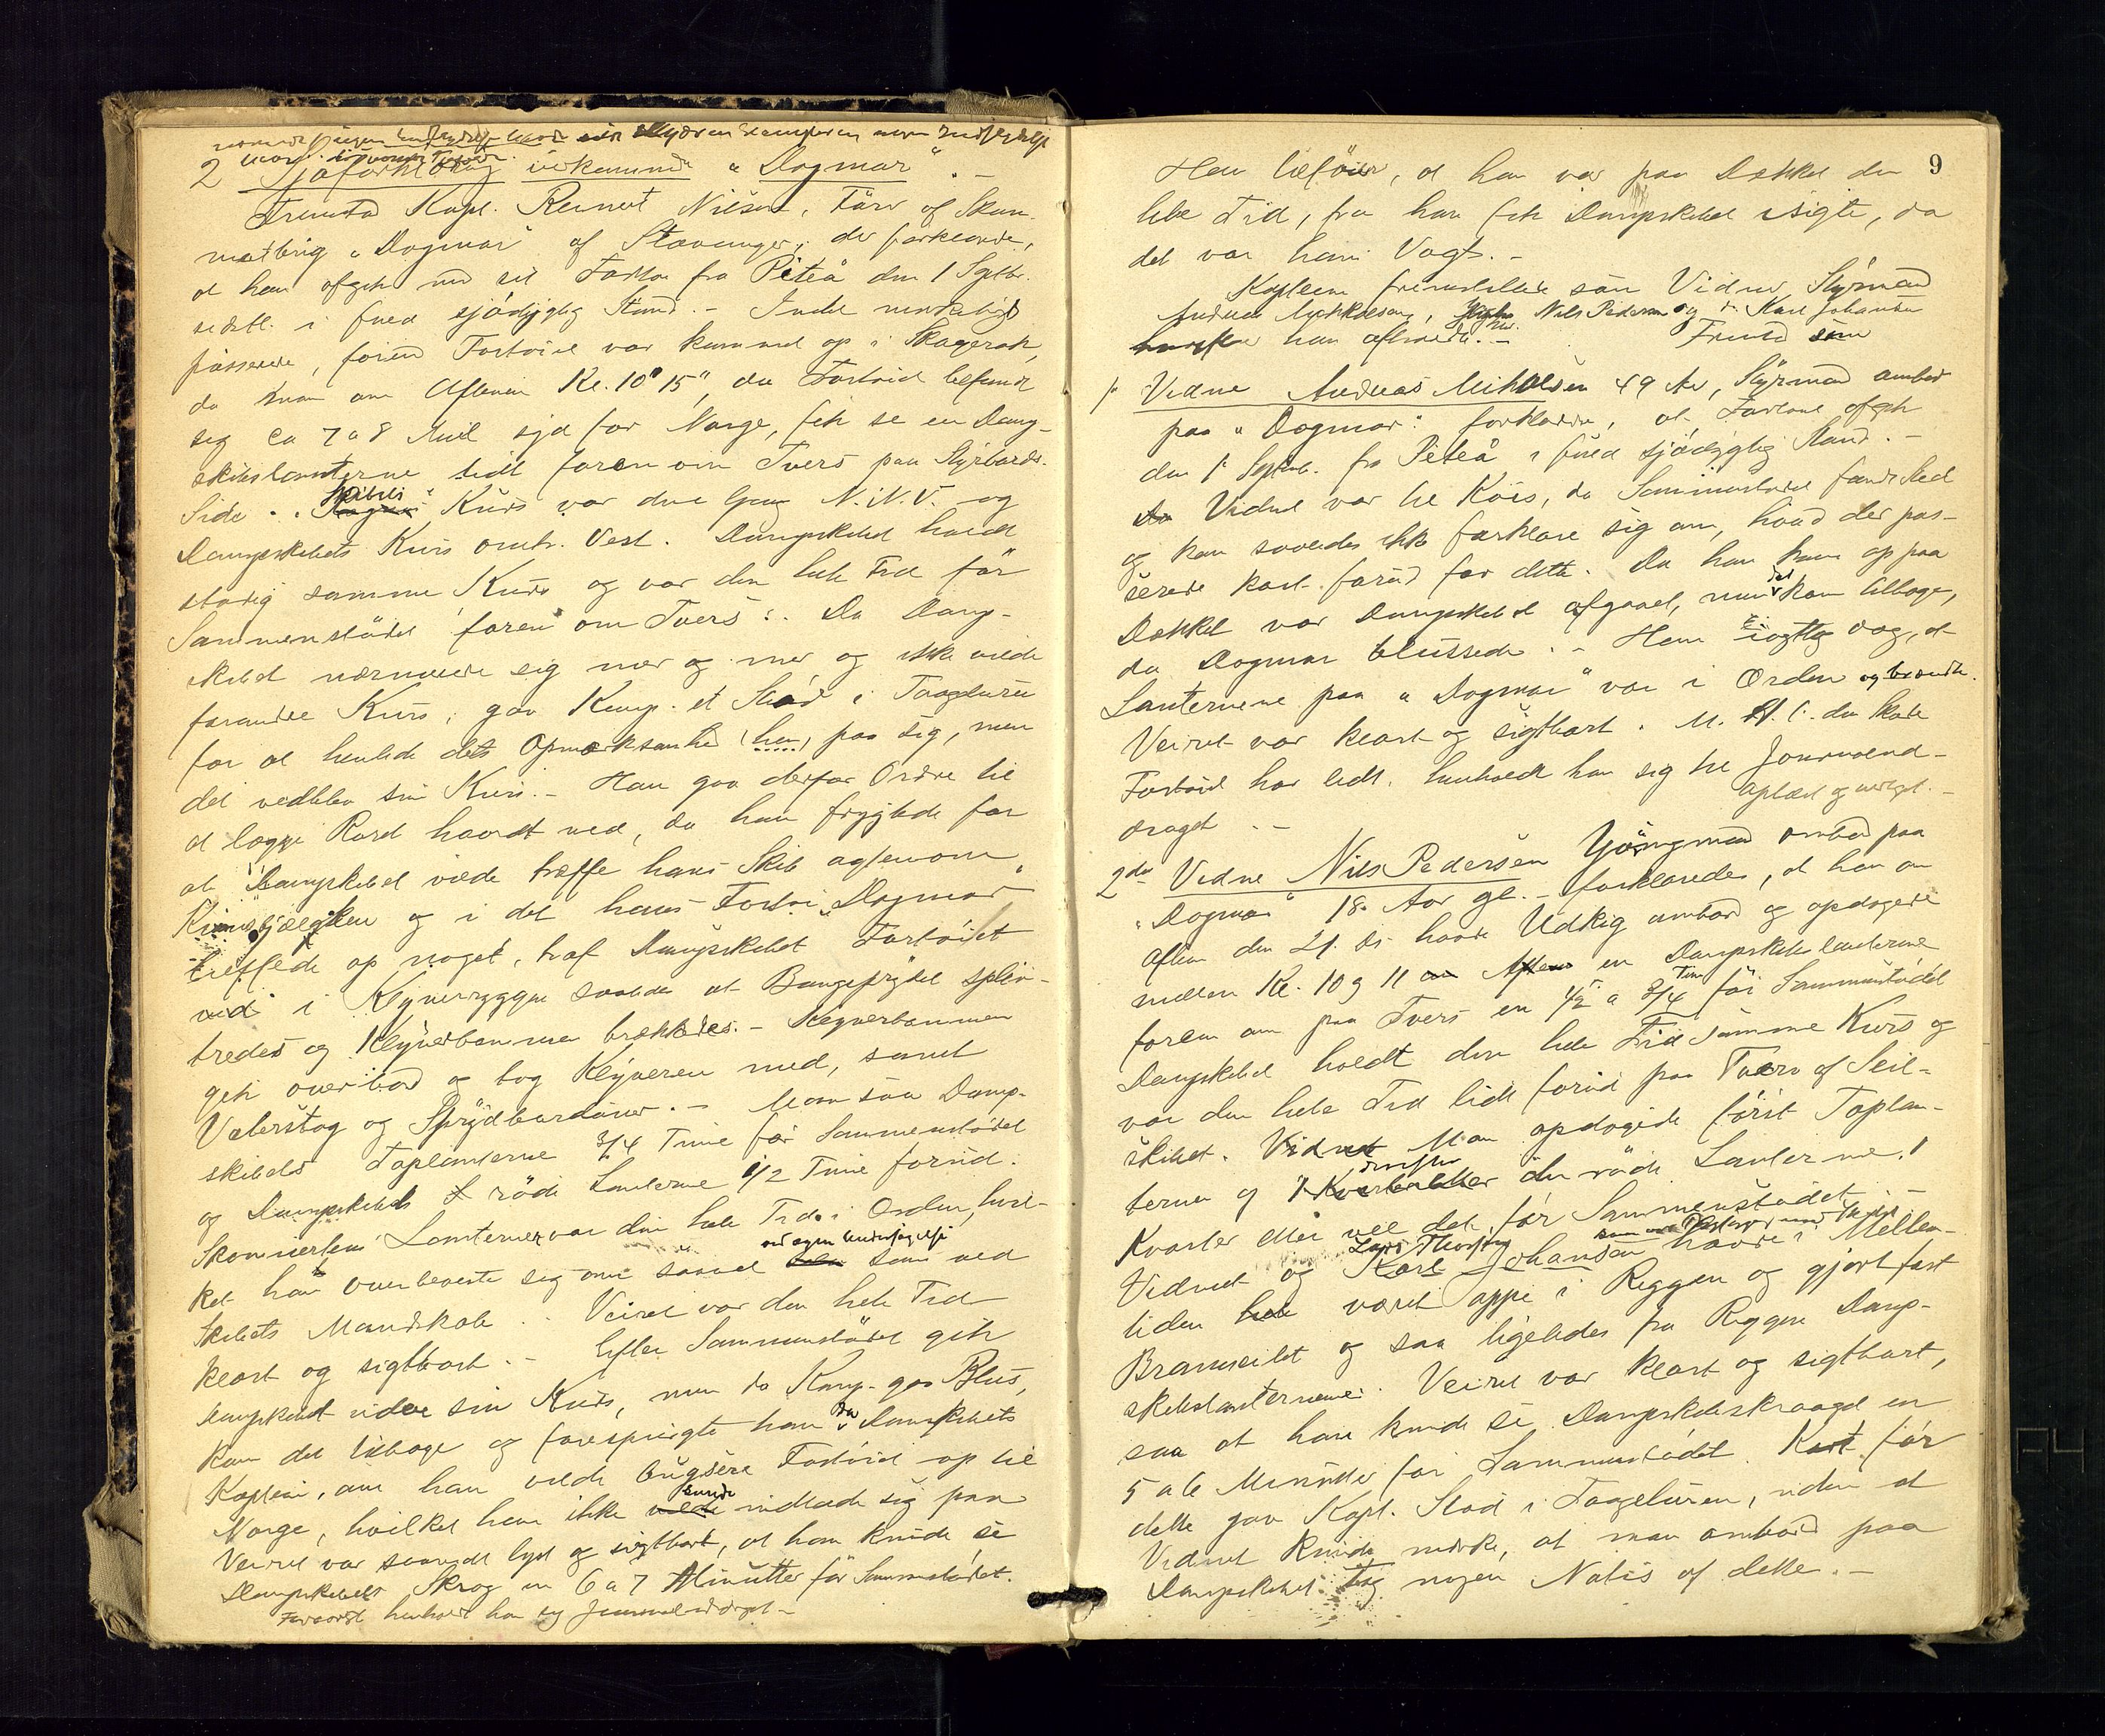 2 Sjøforklaring vedkommende „Dagmar“.
Fremstod Kapt. Reinert Nilsen, Fører af Skon-
nertbrig „Dagmar“ af Stavanger, der forklarede,
at han afgik med sit Fartøi fra Piteå den 1 Septbr.
sidstl. i fuld sjødygtig Stand. – Intet mærkeligt
passerede, førend Fartøiet var kommet op i Skagerak,
da man om Aftenen Kl. 10 15, da Fartøiet befandt
sig ca 7 a 8 Mil af for Norge, fik se en Damp-
skibslanterne lidt foren om Tvers paa Styrbords-
Side. Skibets Kurs var den Gang N.N.V. og
Dampskibets Kurs omtr. Vest. Dampskibet holdt
stadig samme Kurs og var den hele Tid før
Sammenstødet foren om Tvers. Da Damp-
skibet nærmede sig mer og mer og ikke vilde
forandre Kurs, gav Komp. et Stød i Taageluren
for at henlede dets Opmærksomhed (hen) paa sig, men
det vedblev sin Kurs. – Han gav derfor Ordre til
at lægge Roret haardt ned, da han frygtede for
at Dampskibet vilde træffe hans Skib agtenom
og i det hans Fartøi „Dagmar“
luffede op noget, traf Dampskibet Fartøiet
ved i Klyverrygge saaledes at Baugsprydet splin-
tredes og Klyverbommen brækkedes. – Klyverbommen
gik overbord og tog Klyveren med, samt
Vaterstag og Sprydbarduner. – Man saa Damp-
skibets Toplanterne 3/4 Time før Sammenstødet
og Dampskibets røde Lanterne 1/2 Time forud.
Skonnertens Lanterner var den hele Tid i Orden, hvil-
ket han overbeviste sig om saavel ved egen Undersøgelse som ved
Skibets Mandskab. Veiret var den hele Tid
klart og sigtbart. – Efter Sammenstødet gik
Dampskibet videre sin Kurs, men da Komp. gav Blus,
kom det tilbage og forespurgte han da Dampskibets
Kaptein, om han vilde bugsere Fartøiet op til
Norge, hvilket han ikke kunde indlade sig paa
Veiret var saavidt lyst og sigtbart, at han kunde se
Dampskibets Skrog en 6 a 7 Minutter før Sammenstødet.
Forøvrigt henholdt han sig Journaludraget –
9
Han tilføier, at han var paa Dækket den
hele Tid, fra han fik Dampskibet isigte, da
det var hans Vagt. –
Kapteinen fremstillede som Vidner Styrmand
Andreas Mikkelsen, Nils Pedersen og Karl Johansen
han aflagde. – Fremstod som
1ste Vidne Andreas Mikkelsen 49 Aar, Styrmand ombord
paa „Dagmar“ forklarede, at Fartøiet afgik
den 1 Septbr. fra Piteå i fuld sjødygtig Stand. –
Vidnet var til Køis, da Sammenstødet fandt Sted
og kan saaledes ikke forklare sig om, hvad der pas-
serede kort forud for dette. Da han kom op paa
Dækket var Dampskibet afgaaet, men det kom tilbage,
da Dagmar blussede. – Han iagttog dog, at
Lanternene paa „Dagmar“ var i Orden og brændte.
Veiret var klart og sigtbart. M. H. t. den Skade
Fartøiet har lidt, henholdt han sig til Journalud-
draget. – oplæst og vedtget. –
2det Vidne Nils Pedersen Yongmand ombord paa
„Dagmar“ 18 Aar gl. – forklarede, at han om
Aften den 21. ds havde Udkig ombord og opdagede
mellem Kl. 10 og 11 en Dampskibslanterne
foren om paa Tvers en 1/2 a 3/4 Time før Sammenstødet
Dampskibet holdt den hele Tid samme Kurs og
var den hele Tid lidt forud paa Tvers af Seil-
skibet. Man opdagede først Toplan-
ternen og derefter den røde Lanterne 1
Kvarter eller vel det før Sammenstødet –
Vidnet og Lars Thorsen havde i Mellem-
tiden været oppe i Riggen og gjort fast
Bramseilet og saa ligeledes fra Riggen Damp-
skibslanternene. Veiret var klart og sigtbart,
saa at han kunde se Dampskibsskroget en
5 a 6 Minutter før Sammenstødet. Kort før
dette gav Kapt. Stød i Taageluren, uden at
Vidnet kunde mærke, at man ombord paa
Dampskibet tog nogen Notis af dette. –